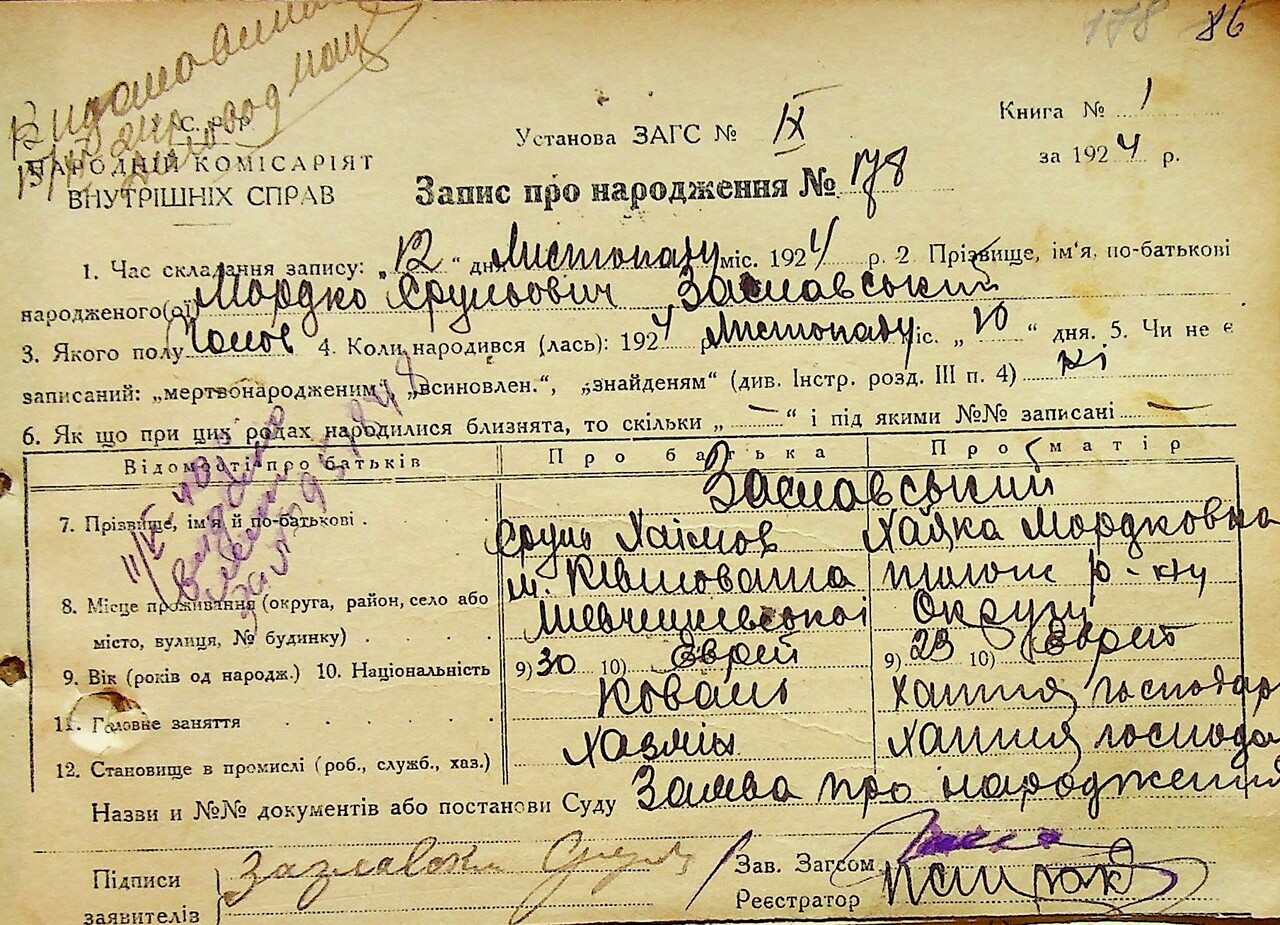 178 86
У.С.Р.Р.
НАРОДНІЙ КОМІСАРІЯТ
ВНУТРІШНІХ СПРАВ
Установа ЗАГС № IX
Книга № 1
за 1924 р.
Запис про народження № 178
1. Час складання запису: „12“ дня Листопаду міс. 1924 р. 2 Прізвище, ім'я, по-батькові
народженого(ої) Мордко Срульович Заславський
3. Якого полу Чолов 4. Коли народився (лась): 1924 р. Листопаду міс. „10“ дня. 5. Чи не є
записаний: „мертвонародженим“, „всиновлен.“, „знайденям“ (див. Інстр. розд. III п. 4) Ні
6. Як що при цих родах народилися близнята, то скільки „—“ і під якими №№ записані —
Відомості про батьків Про батька Про матір
Заславський
7. Прізвище, ім'я й по-батькові . Сруль Хаімов Хайка Мордковна
8. Місце проживання (округа, район, село або м. Ківшовата р-ну
місто, вулиця, № будинку) . . . . Шевченківської Округи
9. Вік (років од народж.) 10. Національність 9) 30 10) Єврей 9) 23 10) Єврей
11. Головне заняття . . . . . Коваль Хатня господар
12. Становище в промислі (роб., служб., хаз.) Хазяїн Хатня господа
Назви и №№ документів або постанови Суду Заява про народження
Підписи
заявителів Заславски Сруль
Зав. Загсом
Реєстратор